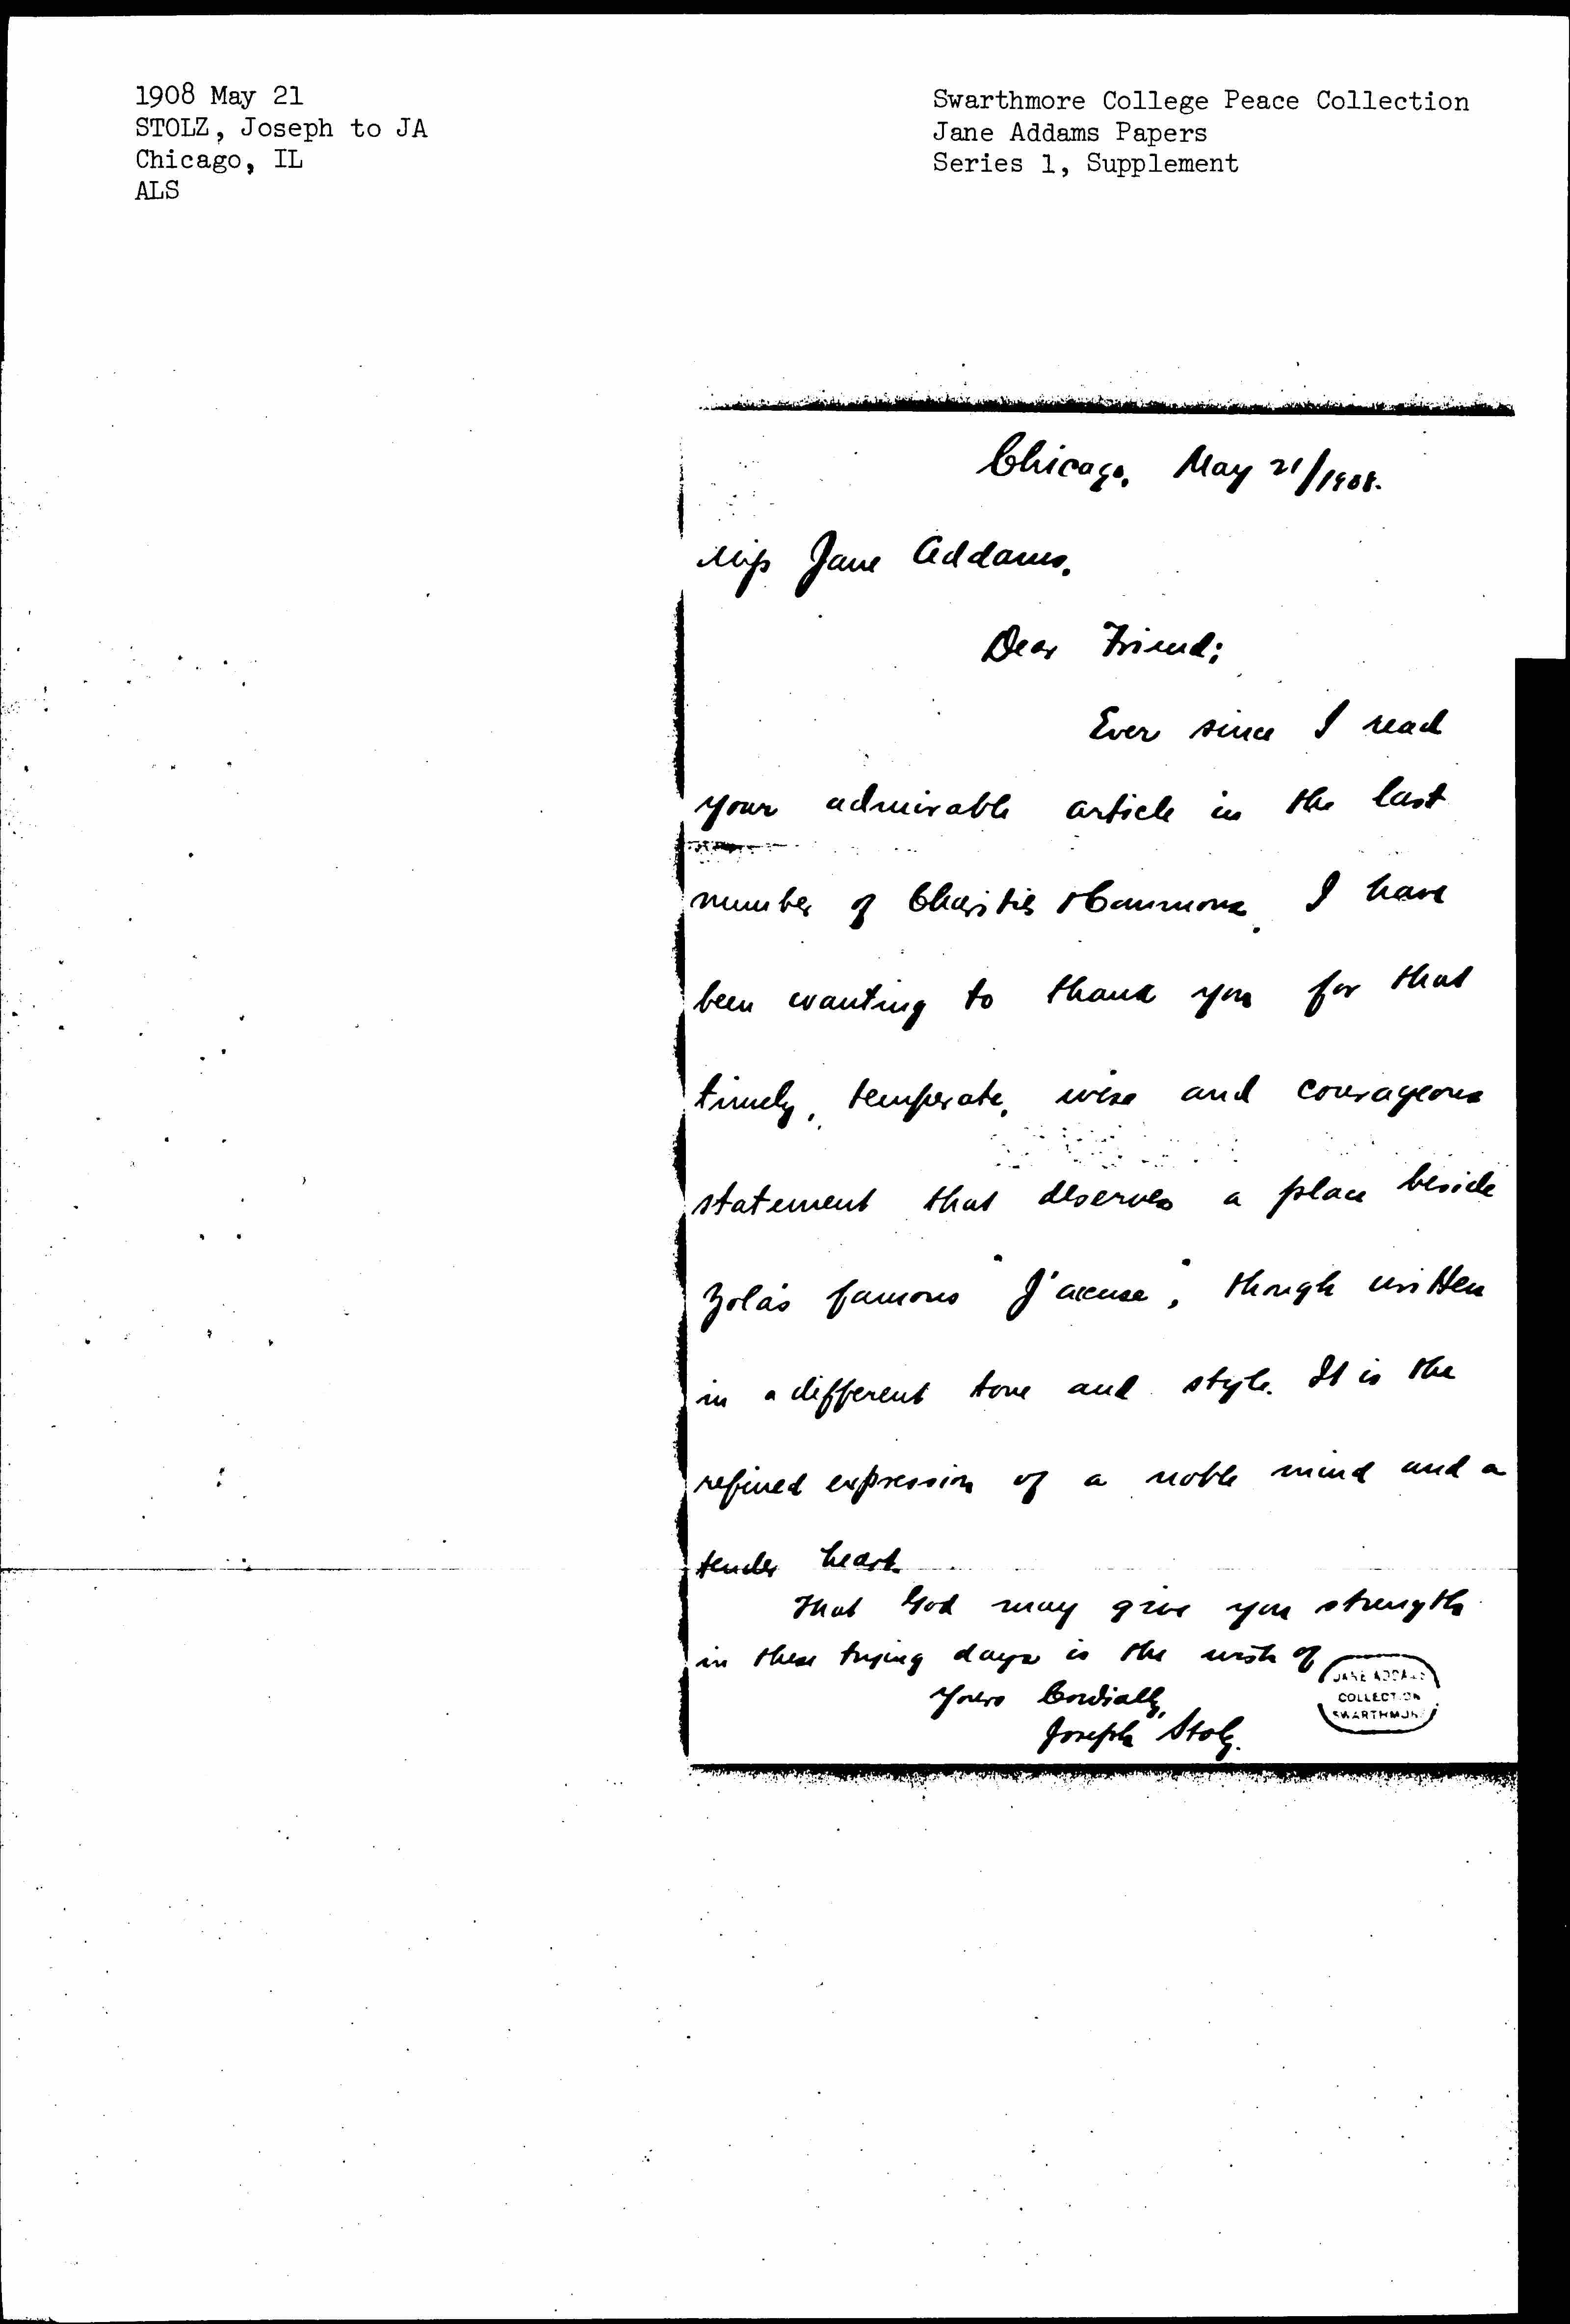 1908 May 21
STOLZ, Joseph to JA
Chicago, IL
ALS
Swarthmore College Peace Collection
Jane Addams Papers
Series 1, Supplement
Chicago, May 21/1908.
Miss Jane Addams.
Dear Friend;
Ever since I read
your admirable article in the last
number of Charities & Commons, I have
been wanting to thank you for that
timely, temperate, wise and courageous
statement that deserves a place beside
Zola's famous "J'accuse", though written
in a different tone and style. It is the
refined expression of a noble mind and a
tender heart.
That God may give you strength
in these trying days is the wish of
Yours Cordially,
Joseph Stolz.
JANE ADDAMS
COLLECTION
SWARTHMORE